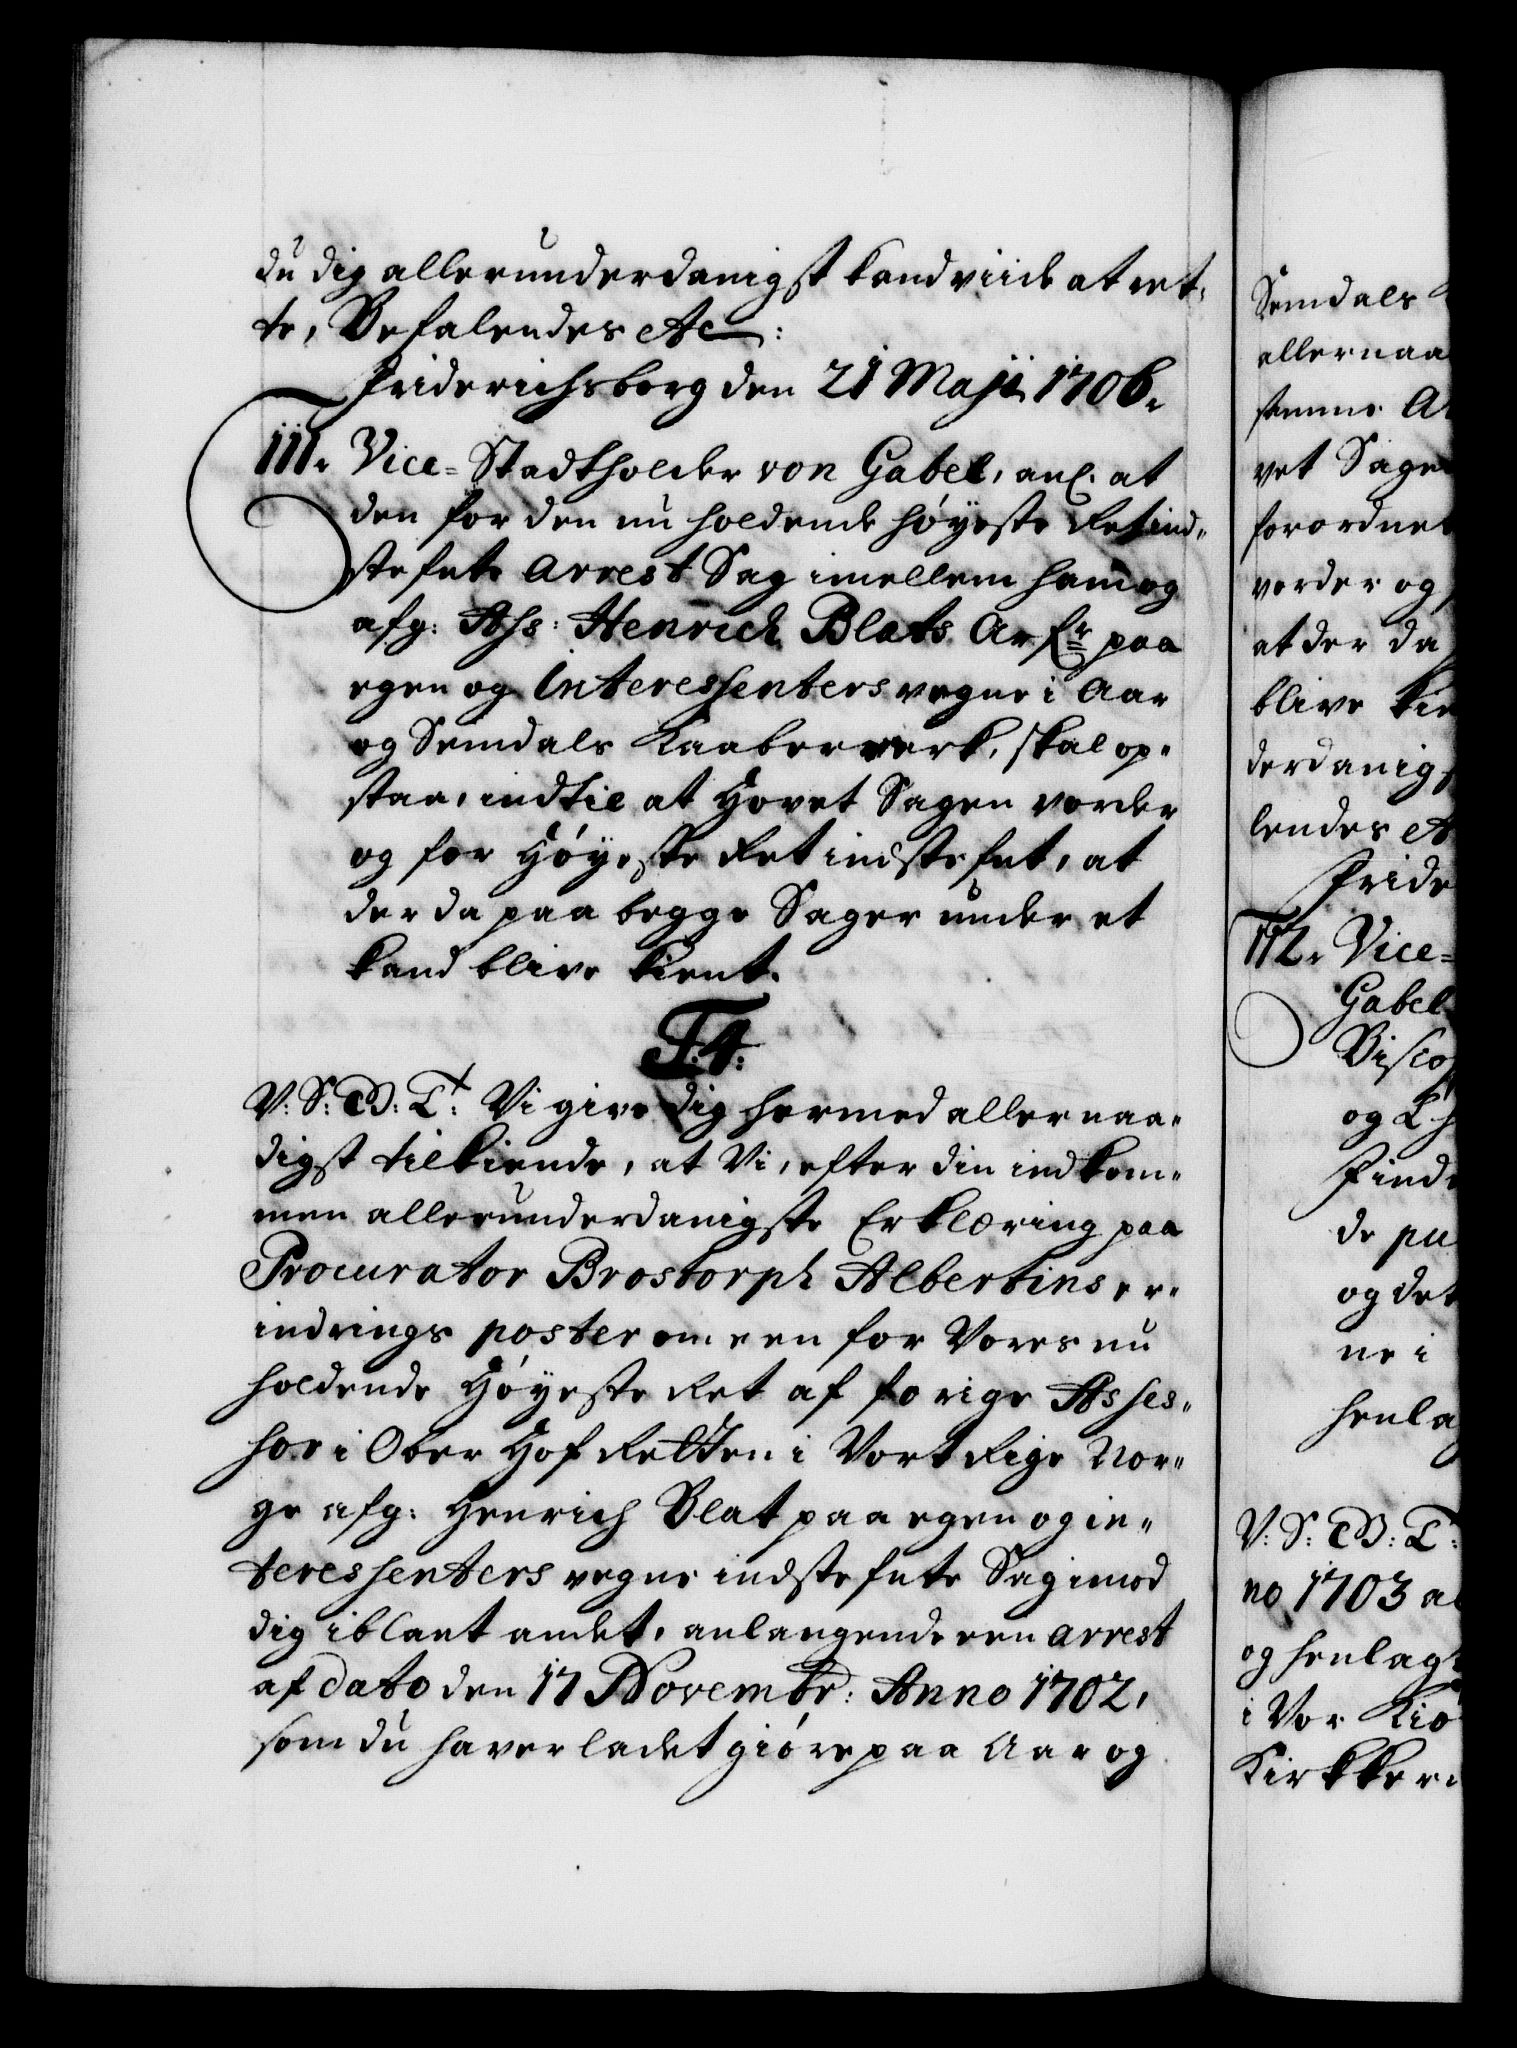 du dig allerunderdanigst kand viide at ret-
te, Befalendes etc:
Friderichsborg den 21 Maji 1706.
111. Vice-Stadtholder von Gabel, anl. at
den for den nu holdende høyeste Ret ind-
stefnte Arrest Sag imellem ham og
afg: Ass: Henrich Blats Arfr paa
egen og Interessenters vegne i Aar
og Semdals Kaaberverk, skal op-
staa, indtil at Hovet Sagen vorder
og for Høyeste Ret indstefnt, at
der da paa begge Sager under et
kand blive kient.
F.4:
V: S: G: B: T: Vi give dig hermed allernaa-
digst tilkiende, at Vi, efter din indkom-
men allerunderdanigste Erklæring paa
Procurator Brostorph Albertins er-
indrings poster om een for Vores nu
holdende Høyeste Ret af forige Asses-
sor i Ober Hof Retten i Vort Rige Nor-
ge afg: Henrich Blat paa egen og in-
teressenters vegne indstefnte Sag imod
dig iblant andet, anlangende een arrest
af dato den 17 Novembr: Anno 1702,
som du haver ladet giøre paa Aar og
Semdals
allernaa
stemme
vet Sage
forordnet
vorder og
at der da
blive kie
derdanigs
lendes
Fride
112. Vice-
Gabel
Bisco
og
Find
de pu
og det
ne i
henla
V: S: G: B: T:
no 1703 al
og henlagt
i Vor Kiø
Kirkker